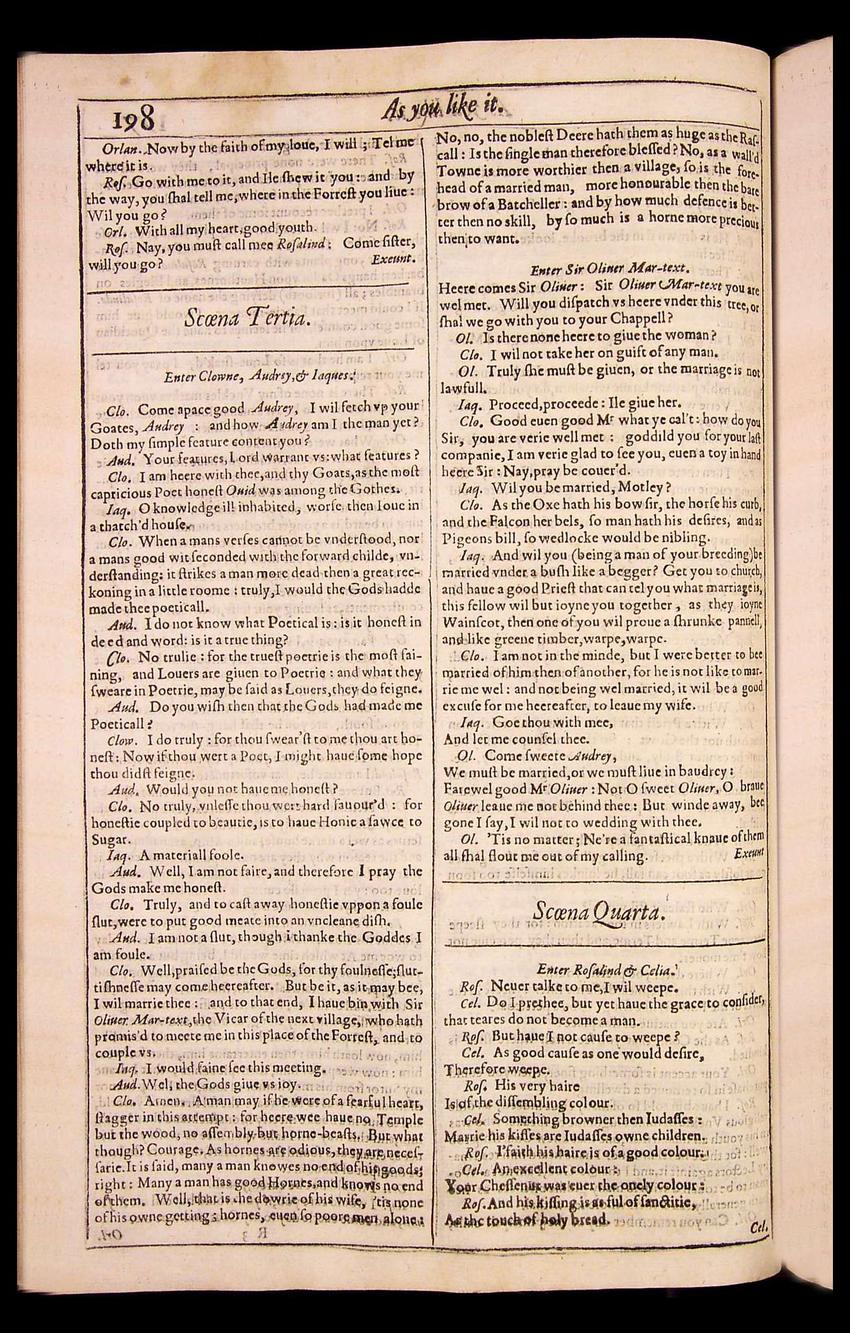 198
As you like it.
Orlan. Now by the faith of my loue, I will ; Tel me
where it is.
Ros. Go with me to it, and Ile shew it you: and by
the way, you shal tell me, where in the Forrest you liue:
Wil you go?
Orl. With all my heart, good youth.
Ros. Nay, you must call mee Rosalind: Come sister,
will you go? Exeunt.
Scœna Tertia.
Enter Clowne, Audrey, & Iaques:
Clo. Come apace good Audrey, I wil fetch vp your
Goates, Audrey : and how Audrey am I the man yet?
Doth my simple feature content you?
Aud. Your features, Lord warrant vs: what features?
Clo. I am heere with thee, and thy Goats, as the most
capricious Poet honest Ouid was among the Gothes.
Iaq. O knowledge ill inhabited, worse then Ioue in
a thatch'd house.
Clo. When a mans verses cannot be vnderstood, nor
a mans good wit seconded with the forward childe, vn-
derstanding: it strikes a man more dead then a great rec-
koning in a little roome : truly, I would the Gods hadde
made thee poeticall.
Aud. I do not know what Poetical is: is it honest in
deed and word: is it a true thing?
Clo. No trulie : for the truest poetrie is the most fai-
ning, and Louers are giuen to Poetrie : and what they
sweare in Poetrie, may be said as Louers, they do feigne.
Aud. Do you wish then that the Gods had made me
Poeticall?
Clow. I do truly : for thou swear'st to me thou art ho-
nest: Now if thou wert a Poet, I might haue some hope
thou didst feigne.
Aud. Would you not haue me honest?
Clo. No truly, vnlesse thou wert hard fauour'd : for
honestie coupled to beautie, is to haue Honie a sawce to
Sugar.
Iaq. A materiall foole.
Aud. Well, I am not faire, and therefore I pray the
Gods make me honest.
Clo. Truly, and to cast away honestie vppon a foule
slut, were to put good meate into an vncleane dish.
Aud. I am not a slut, though I thanke the Goddes I
am foule.
Clo. Well, praised be the Gods, for thy foulnesse; slut-
tishnesse may come heereafter. But be it, as it may bee,
I wil marrie thee : and to that end, I haue bin with Sir
Oliuer Mar-text, the Vicar of the next village, who hath
promis'd to meete me in this place of the Forrest, and to
couple vs.
Iaq. I would faine see this meeting.
Aud. Wel, the Gods giue vs ioy.
Clo. Amen. A man may if he were of a fearful heart,
stagger in this attempt : for heere wee haue no Temple
but the wood, no assembly but horne-beasts. But what
though? Courage. As hornes are odious, they are neces-
sarie. It is said, many a man knowes no end of his goods;
right : Many a man has good Hornes, and knows no end
of them. Well, that is the dowrie of his wife, 'tis none
of his owne getting; hornes, euen so poore men alone:
No, no, the noblest Deere hath them as huge as the Ras-
call : Is the single man therefore blessed? No, as a wall'd
Towne is more worthier then a village, so is the fore-
head of a married man, more honourable then the bare
brow of a Batcheller : and by how much defence is bet-
ter then no skill, by so much is a horne more precious
then to want.
Enter Sir Oliuer Mar-text.
Heere comes Sir Oliuer : Sir Oliuer Mar-text you are
wel met. Will you dispatch vs heere vnder this tree, or
shal we go with you to your Chappell?
Ol. Is there none heere to giue the woman?
Clo. I wil not take her on guift of any man.
Ol. Truly she must be giuen, or the marriage is not
lawfull.
Iaq. Proceed, proceede: Ile giue her.
Clo. Good euen good Mr what ye cal't: how do you
Sir, you are verie well met : goddild you for your last
companie, I am verie glad to see you, euen a toy in hand
heere Sir : Nay, pray be couer'd.
Iaq. Wil you be married, Motley?
Clo. As the Oxe hath his bow sir, the horse his curb,
and the Falcon her bels, so man hath his desires, and as
Pigeons bill, so wedlocke would be nibling.
Iaq. And wil you (being a man of your breeding) be
married vnder a bush like a begger? Get you to church,
and haue a good Priest that can tel you what marriage is,
this fellow wil but ioyne you together, as they ioyne
Wainscot, then one of you wil proue a shrunke pannell,
and like greene timber, warpe, warpe.
Clo. I am not in the minde, but I were better to bee
married of him then of another, for he is not like to mar-
rie me wel : and not being wel married, it wil be a good
excuse for me heereafter, to leaue my wife.
Iaq. Goe thou with mee,
And let me counsel thee.
Ol. Come sweete Audrey,
We must be married, or we must liue in baudrey:
Farewel good Mr Oliuer : Not O sweet Oliuer, O braue
Oliuer leaue me not behind thee : But winde away, bee
gone I say, I wil not to wedding with thee.
Ol. 'Tis no matter; Ne're a fantastical knaue of them
all shal flout me out of my calling. Exeunt
Scœna Quarta.
Enter Rosalind & Celia.
Ros. Neuer talke to me, I wil weepe.
Cel. Do I prethee, but yet haue the grace to consider,
that teares do not become a man.
Ros. But haue I not cause to weepe?
Cel. As good cause as one would desire,
Therefore weepe.
Ros. His very haire
Is of the dissembling colour.
Cel. Something browner then Iudasses:
Marrie his kisses are Iudasses owne children.
Ros. I'faith his haire is of a good colour.
Cel. An excellent colour :
Your Chessenut was euer the onely colour :
Ros. And his kissing is as ful of sanctitie,
As the touch of holy bread.
Cel.